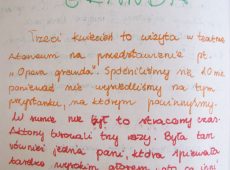 Trzeci kwiecień to wizyta w teatrze
Ateneum na przedstawienie pt.
„Opera granda". Spóźniliśmy się 20 min
ponieważ nie wysiedliśmy na tym
przystanku, na którym powinniśmy.
W sumie nie był to stracony czas.
Aktorzy bisowali trzy razy. Była tam
również jedna pani, która śpiewała
bardzo wysokim głosem